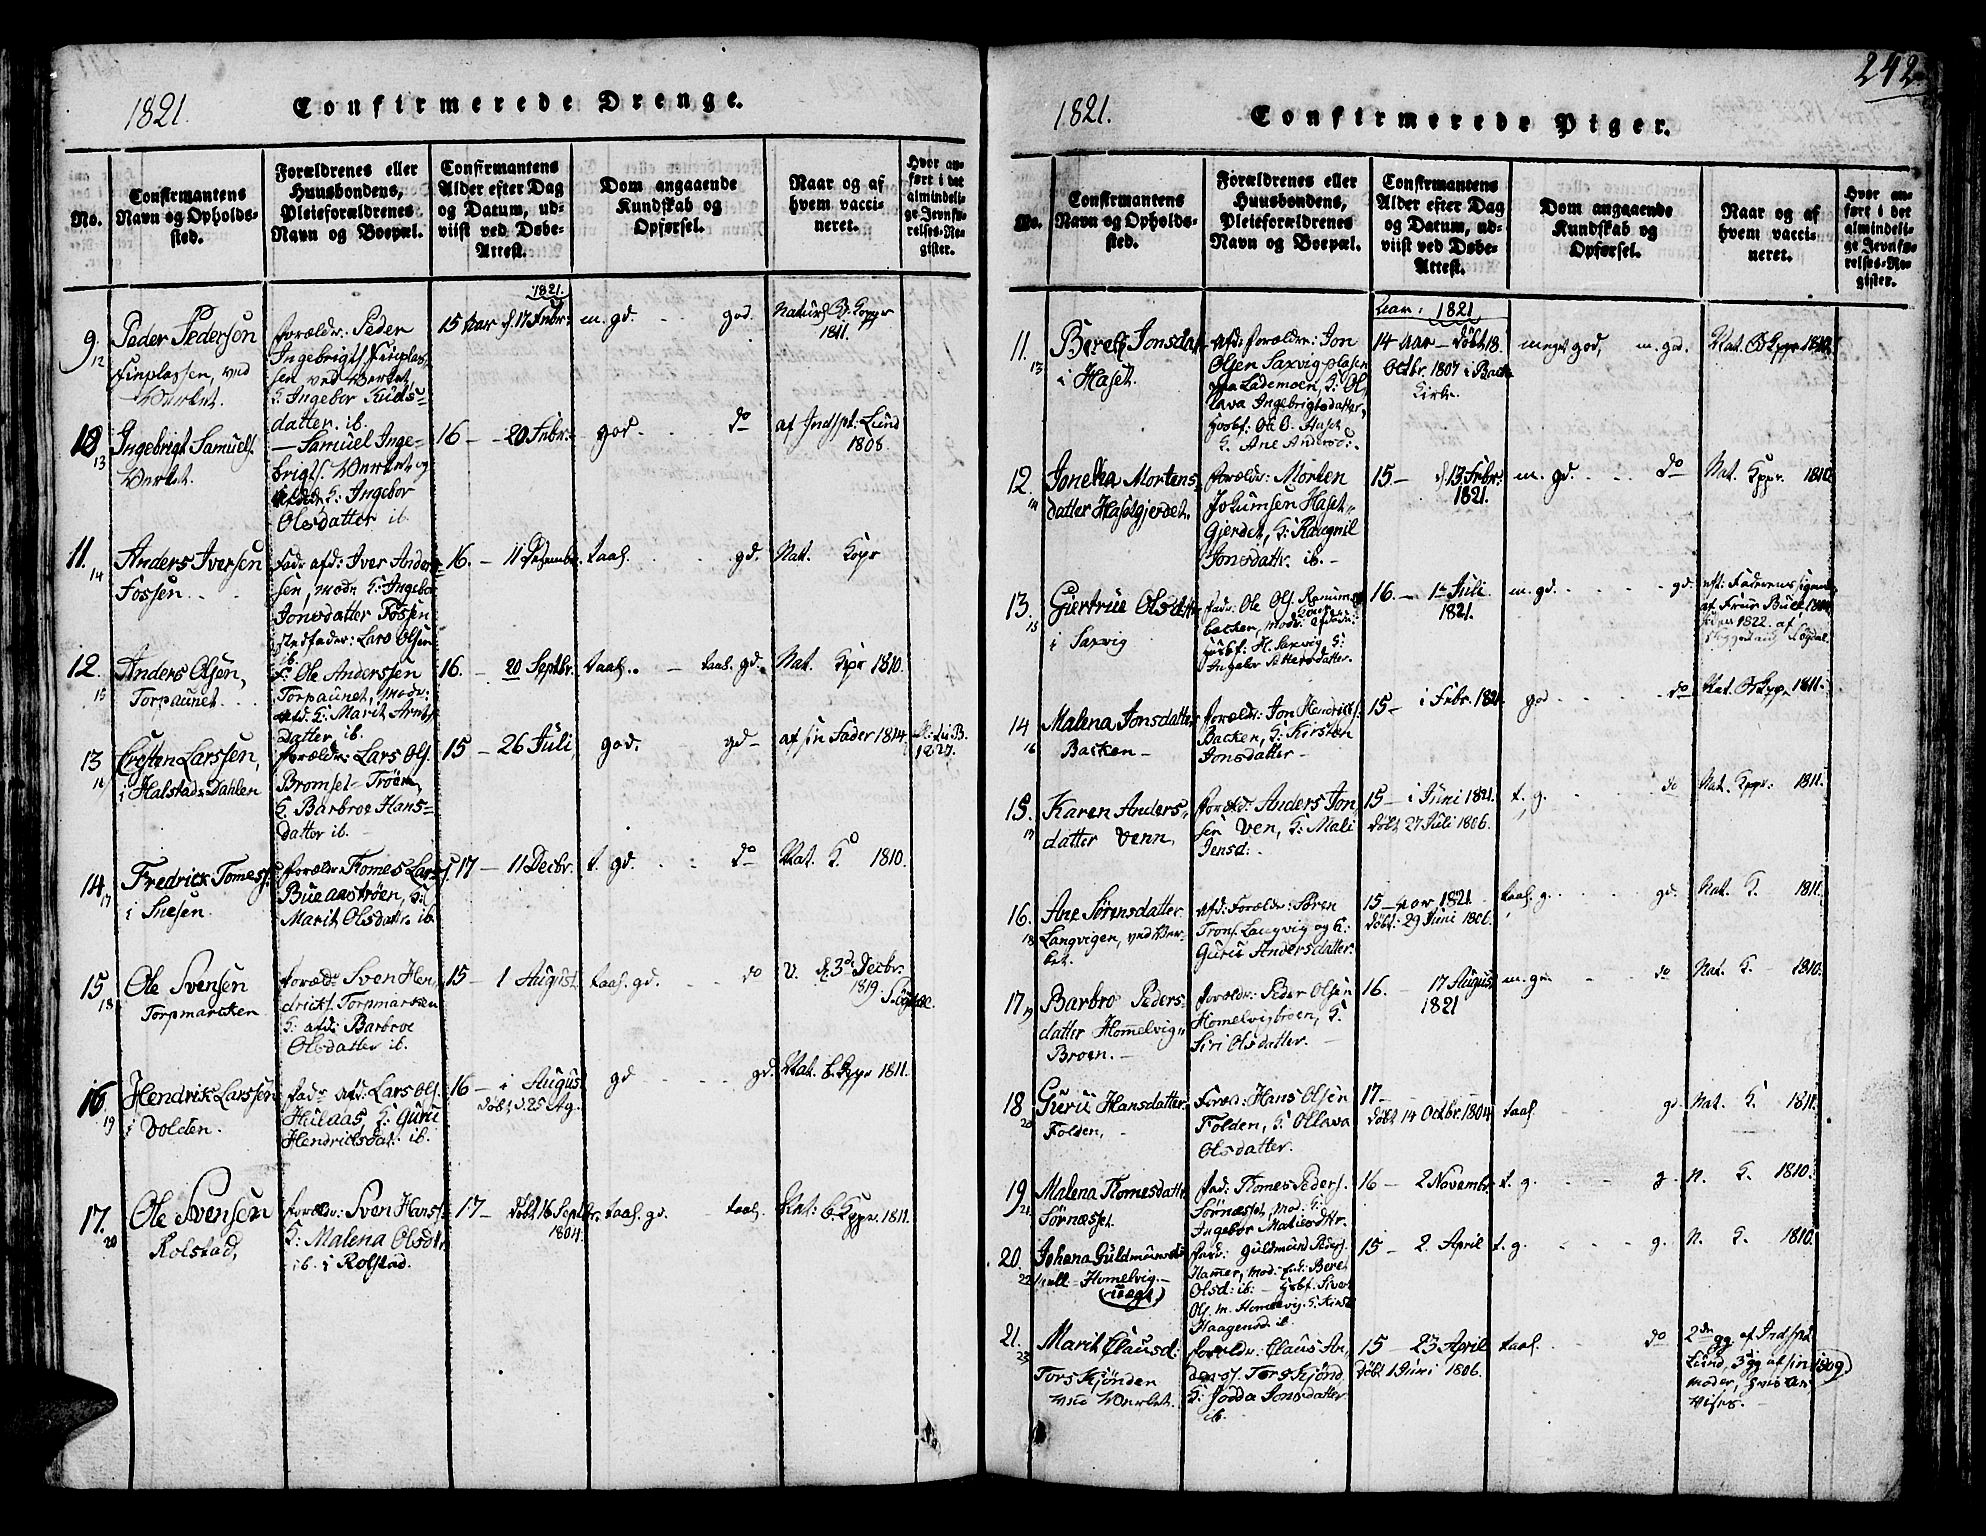 242
1821.
Confirmerede Drenge.
No.
Confirmantens
Navn og Opholds-
sted.
Forældrenes eller
Huusbondens,
Pleieforældrenes
Navn og Boepæl.
Confirmantens
Alder efter Dag
og Datum, ud-
viist ved Døbe-
Attest.
Dom angaaende
Kundskab og
Opførsel.
Naar og af
hvem vacci-
neret.
Hvor an-
ført i det
almindeli-
ge Jevnfø-
relses-Re-
gister.
9.
12
Peder Pedersen
Finplassen, ved
Værket.
forældr: Peder
Ingebrigts. Finplas-
sen, ved Værket,
datter. ib.
1821.
15 Aar d. 17 Febr:
m. gd. god.
Naturl. B. Kopper
1811.
10
13
Ingebrigt Samuels.
Værket.
— Samuel Inge-
brigts. Værket og
K: Ingebor
Olsdatter ib.
16 — 20 Febr:
god. do
af Indsp: Lund
1808.
11.
14
Anders Iversen
Fossen
Fadr afd: Iver Anders-
sen, modr K: Ingebor
Jonsdatter Fossen
stedfader: Lars Olsen
ib.
16. — 11 Desembr.
taal. gd.
Nat. Kopr
12.
15
Anders Olsen,
Torpaunet
F: Ole Anderssen
Torpaunet, modr:
afd: K: Marit Arnts
datter ib.
16. — 20 Septbr.
taal. — taal. gd.
Nat. Kppr 1810.
13
16
Cresten Larssen,
i Halstads Dahlen
forældr: Lars Ols.
Bromset-Trøen
K: Barbroe Hans-
datter ib.
15 — 26 Juli
god. gd —
af sin Fader 1814.
14.
17
Fredrick Tomess.
i Snesen.
forældr Tomes Lars
Bueaastrøen, K:
Marit Olsdatr. ib.
17 — 11 Decbr.
t. gd. do
Nat. K 1810.
15
18
Ole Svensen
Torpmarcken
foræld: Sven Hen
dricks. Torpmarken
K: afd: Barbroe
Olsdatter ib.
15 — 1 August
taal. gd. do
V. d. 3de Decbr.
1819. Løgdal
16.
19
Hendrick Larssen
i Dolden.
fadr afd. Lars Ols.
Hulaas, K: Guru
Hendricksdat: ib.
16 — i August
døbt d. 25 Ag.
gd gd.
Nat. b. Kppr 1811.
17.
20
Ole Svensen
Rolstad,
forældr: Sven Hans.
K: Malena Olsdtr
ib. i Rolstad.
17 — døbt 16 Septbr.
1804.
taal. gd. — taal.
Nat: b. Kppr. 1811.
1821.
Confirmerede Piger.
No.
Confirmantens
Navn og Opholds-
sted.
Forældrenes eller
Huusbondens,
Pleieforældrenes
Navn og Boepæl.
Confirmantens
Alder efter Dag
og Datum, ud-
viist ved Døbe-
Attest.
Dom angaaende
Kundskab og
Opførsel.
Naar og af
hvem vacci-
neret.
Hvor an-
ført i det
almindeli-
ge Jevnfø-
relses-Re-
gister.
11.
13
Beret Jonsdat
i Haset.
afd: forældre: Jon
Olsen Saxvig-Olasen
paa Lademoen, K: Ol-
lava Ingebrigtsdatter,
K: Ane Andersd:.
Aar: 1821
14 Aar — døbt 18.
Octbr. 1807 i Backe
Kirke.
meget god, m. god.
Nat. B Kppr 1810.
12.
14
Jonetta Mortens
datter Hasetgjerdet.
forældr: Morten
Jochumsen Haset-
Gjerdet, K: Raagnil
Jonsdattr. ib. —
15 — d 13 Febr:
1821.
m. gd. do
Nat. Kppr. 1810
13.
15
Giertrue Olsdatter
i Saxvig
fadr: Ole Ols.
backen, modr: afdøde:
Husbf: H. Saxvig K:
Ingebr Pettersdatter.
16. — 1te Juli
1821.
m. gd. gd.
eft: Faderens sigende
14
16
Malena Jonsdatter
Backen —
forældr: Jon Hendricks.
Backen, K: Kirsten
Jonsdatter —
15 — i Febr. 1821
god do
Nat. B Kpp. 1811.
15.
17
Karen Anders-
datter Venn,
foræld: Anders Jon
sen Ven, K: Mali
Jensd:.
15 — i Juni 1821.
døbt 27 Juli 1806.
t. g. do
Nat. Kppr: 1811.
16.
18
Ane Sørensdatter
Langvigen, ved Ver-
ket.
afd: Forældr: Søren
Trons. Langvig og K:
Guru Andersdatter.
15 — aar 1821
døbt: 29 Juni 1806.
taal. g. gd.
Nat. K. 1811.
17
19
Barbro Peders
datter Homelvig-
Broen. —
forældr: Peder Olsen
Homelvigbroen, K.
Siri Olsdatter. —
16. — 17 August
1821
m. gd. do
Nat. K. — 1810.
18
20
Guru Hansdatter
Folden, —
Foræld: Hans Olsen
Folden, K: Ollava
Olsdatter.
17 —
døbt 14 Octbr. 1804.
taal. gd
Nat. K. 1811.
19
21
Malena Tomesdattr
Sørnæsset
fad: Tomes Peders.
Sørnæsset, mod: K:
Ingebor Matiesdtr.
16 — 2 Novembr.
t. g. g.
N. K. 1810.
20.
22
Johana Guldmunds
Homelvig.—
fad: Guldmund Peders.
Hamer, mod: K: Beret
Olsd: ib. — Husbf: Siver
Ols. m. Homelvig. K: Kirst
Haagensd. ib.
15 — 2. April
t. g. g.
N. K. 1810.
21.
23
Marit Clausd:
Torskjønden
ved Værket.
forældr: Claus An,
ders. Torskjønd,
K: Jødda Jonsdatter
ib.
15 — 23 April
døbt 1 Juni 1806.
taal. do
2de gg. af Indsp:
Lund, 3 gg af sin 1809
moder,